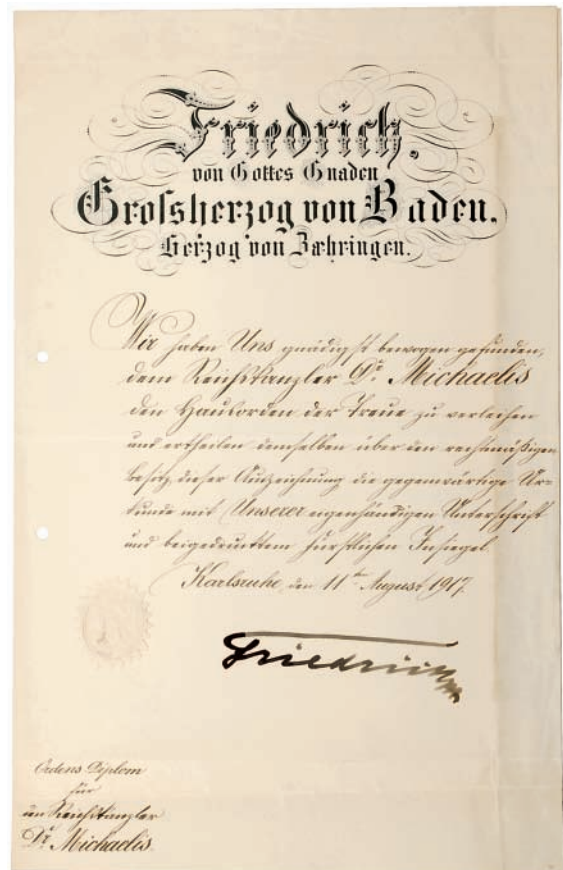 Friedrich,
von Gottes Gnaden
Grossherzog von Baden,
Herzog von Zæhringen.
Wir haben Uns gnädigst bewogen gefunden,
dem Reichskanzler Dr. Michaelis
den Hausorden der Treue zu verleihen
und ertheilen demselben über den rechtmäßigen
Besitz dieser Auszeichnung die gegenwärtige Ur=
kunde mit Unserer eigenhändigen Unterschrift
und beigedrucktem fürstlichen Insiegel.
Karlsruhe, den 11ten August 1917.
Friedrich
Ordens Diplom
für
den Reichskanzler
Dr. Michaelis.